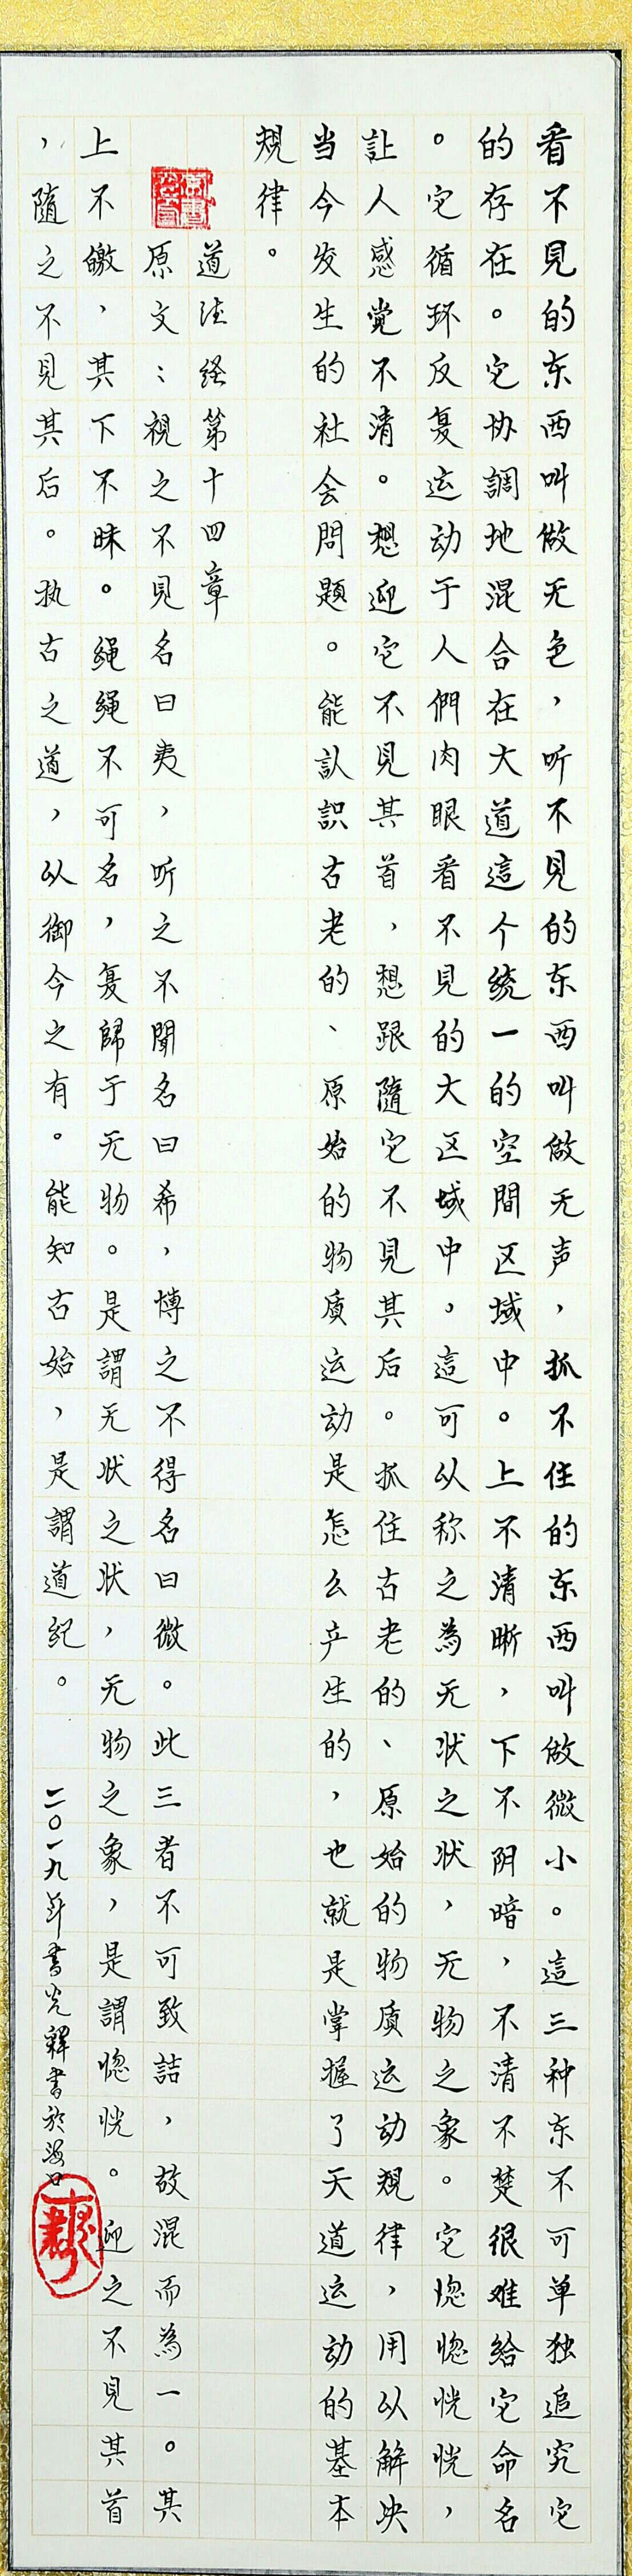 看不見的东西叫做无色，听不見的东西叫做无声，抓不住的东西叫做微小。這三种东不可单独追究它
的存在。它协調地混合在大道這个统一的空間区域中。上不清晰，下不阴暗，不清不楚很难给它命名
。它循环反复运动于人們肉眼看不見的大区域中。這可以称之為无状之状，无物之象。它惚惚恍恍，
訨人感觉不清。想迎它不見其首，想跟隨它不見其后。抓住古老的、原始的物质运动規律，用以解决
当今发生的社会問題。能认識古老的、原始的物质运动是怎么产生的，也就是掌握了天道运动的基本
規律。
道法经第十四章
原文：視之不見名曰夷，听之不聞名曰希，博之不得名曰微。此三者不可致詰，故混而為一。其
上不皦，其下不昧。绳绳不可名，复歸于无物。是謂无状之状，无物之象，是謂惚恍。迎之不見其首
，隨之不見其后。执古之道，以御今之有。能知古始，是謂道纪。
二〇一九年書光释書於海口